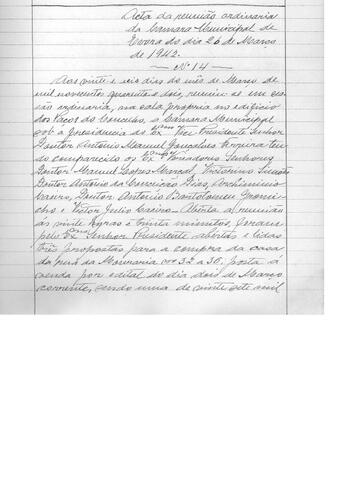 Acta da reunião ordinaria
da Camara Municipal de
Evora do dia 26 de Março
de 1942.
— Nº 14 —
Aos vinte e seis dias do mês de Março de
mil novecentos quarenta e dois, reuniu-se em ses-
são ordinaria, na sala propria no edificio
dos Paços do Concelho, a Câmara Municipal
sob a presidencia do Exmo Vice Presidente Senhor
Doutor Antonio Manuel Gonçalves Ferreira ten-
do comparecido os Exmos Vereadores Senhores
Doutor Manuel Gomes Marçal, Victorino Simões
Doutor Antonio da Conceição Dias, Archiminio
Caeiro, Doutor Antonio Bartolomeu Gromi-
cho e Victor Julio Caeiro. Aberta a reunião
ás vinte horas e trinta minutos, foram
pelo Exmo Senhor Presidente abertas e lidas
três propostas para a compra da casa
da rua da Mouraria nos 32 a 36, posta á
venda por edital do dia dois de Março
corrente, sendo uma de vinte sete mil